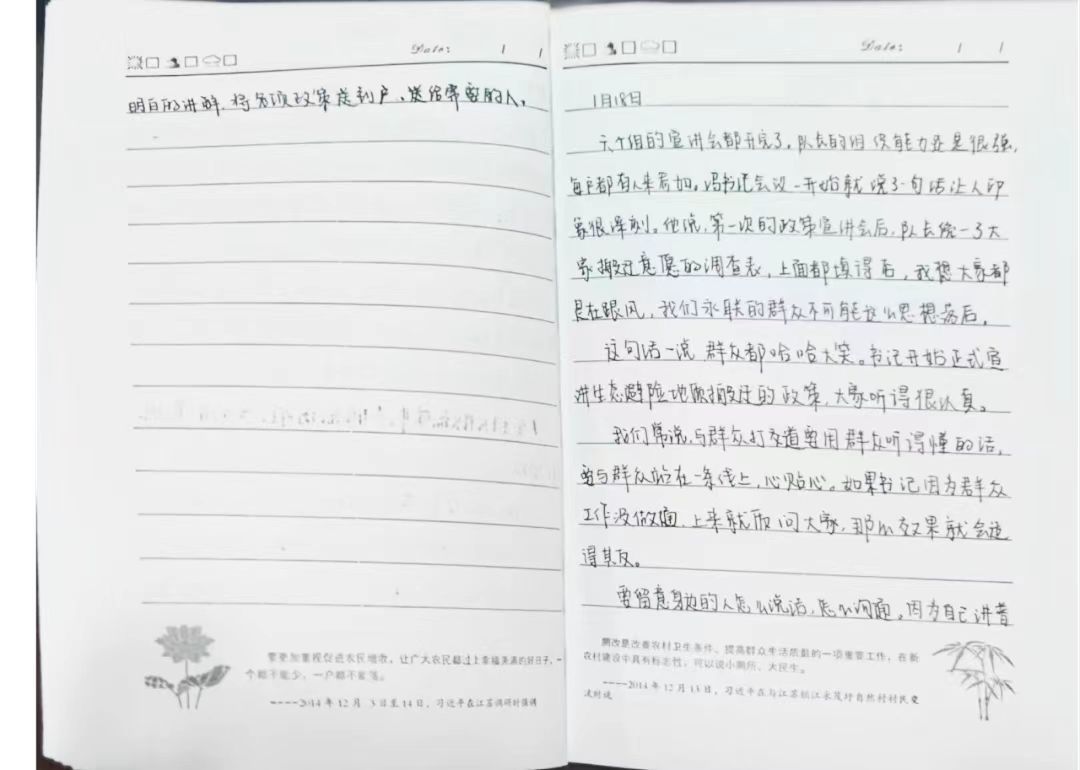 Date: / /
明白的讲解,将各项政策送到户、送给需要的人。
要更加重视促进农民增收,让广大农民都过上幸福美满的好日子,一
个都不能少,一户都不能落。
----2014年12月13日至14日,习近平在江苏调研时强调
Date: / /
1月18日
六个组的宣讲会都开完了。队长的组织能力还是很强,
每户都有人来参加。冯书记会议一开始就说了一句话让人印
象很深刻。他说,第一次的政策宣讲会后,队长统一了大
家搬迁意愿的调查表,上面都填得否,我想大家都
是在跟风,我们永联的群众不可能这么思想落后。
这句话一说 群众都哈哈大笑。书记开始正式宣
讲生态避险地质搬迁的政策,大家听得很认真。
我们常说,与群众打交道要用群众听得懂的话,
要与群众站在一条线上,心贴心。如果书记因为群众
工作没做通,上来就质问大家,那么效果就会适
得其反。
要留意身边的人怎么说话,怎么沟通。因为自己讲普
厕改是改善农村卫生条件、提高群众生活质量的一项重要工作,在新
农村建设中具有标志性,可以说小厕所、大民生。
----2014年12月13日,习近平在与江苏镇江永茂圩自然村村民交
谈时说